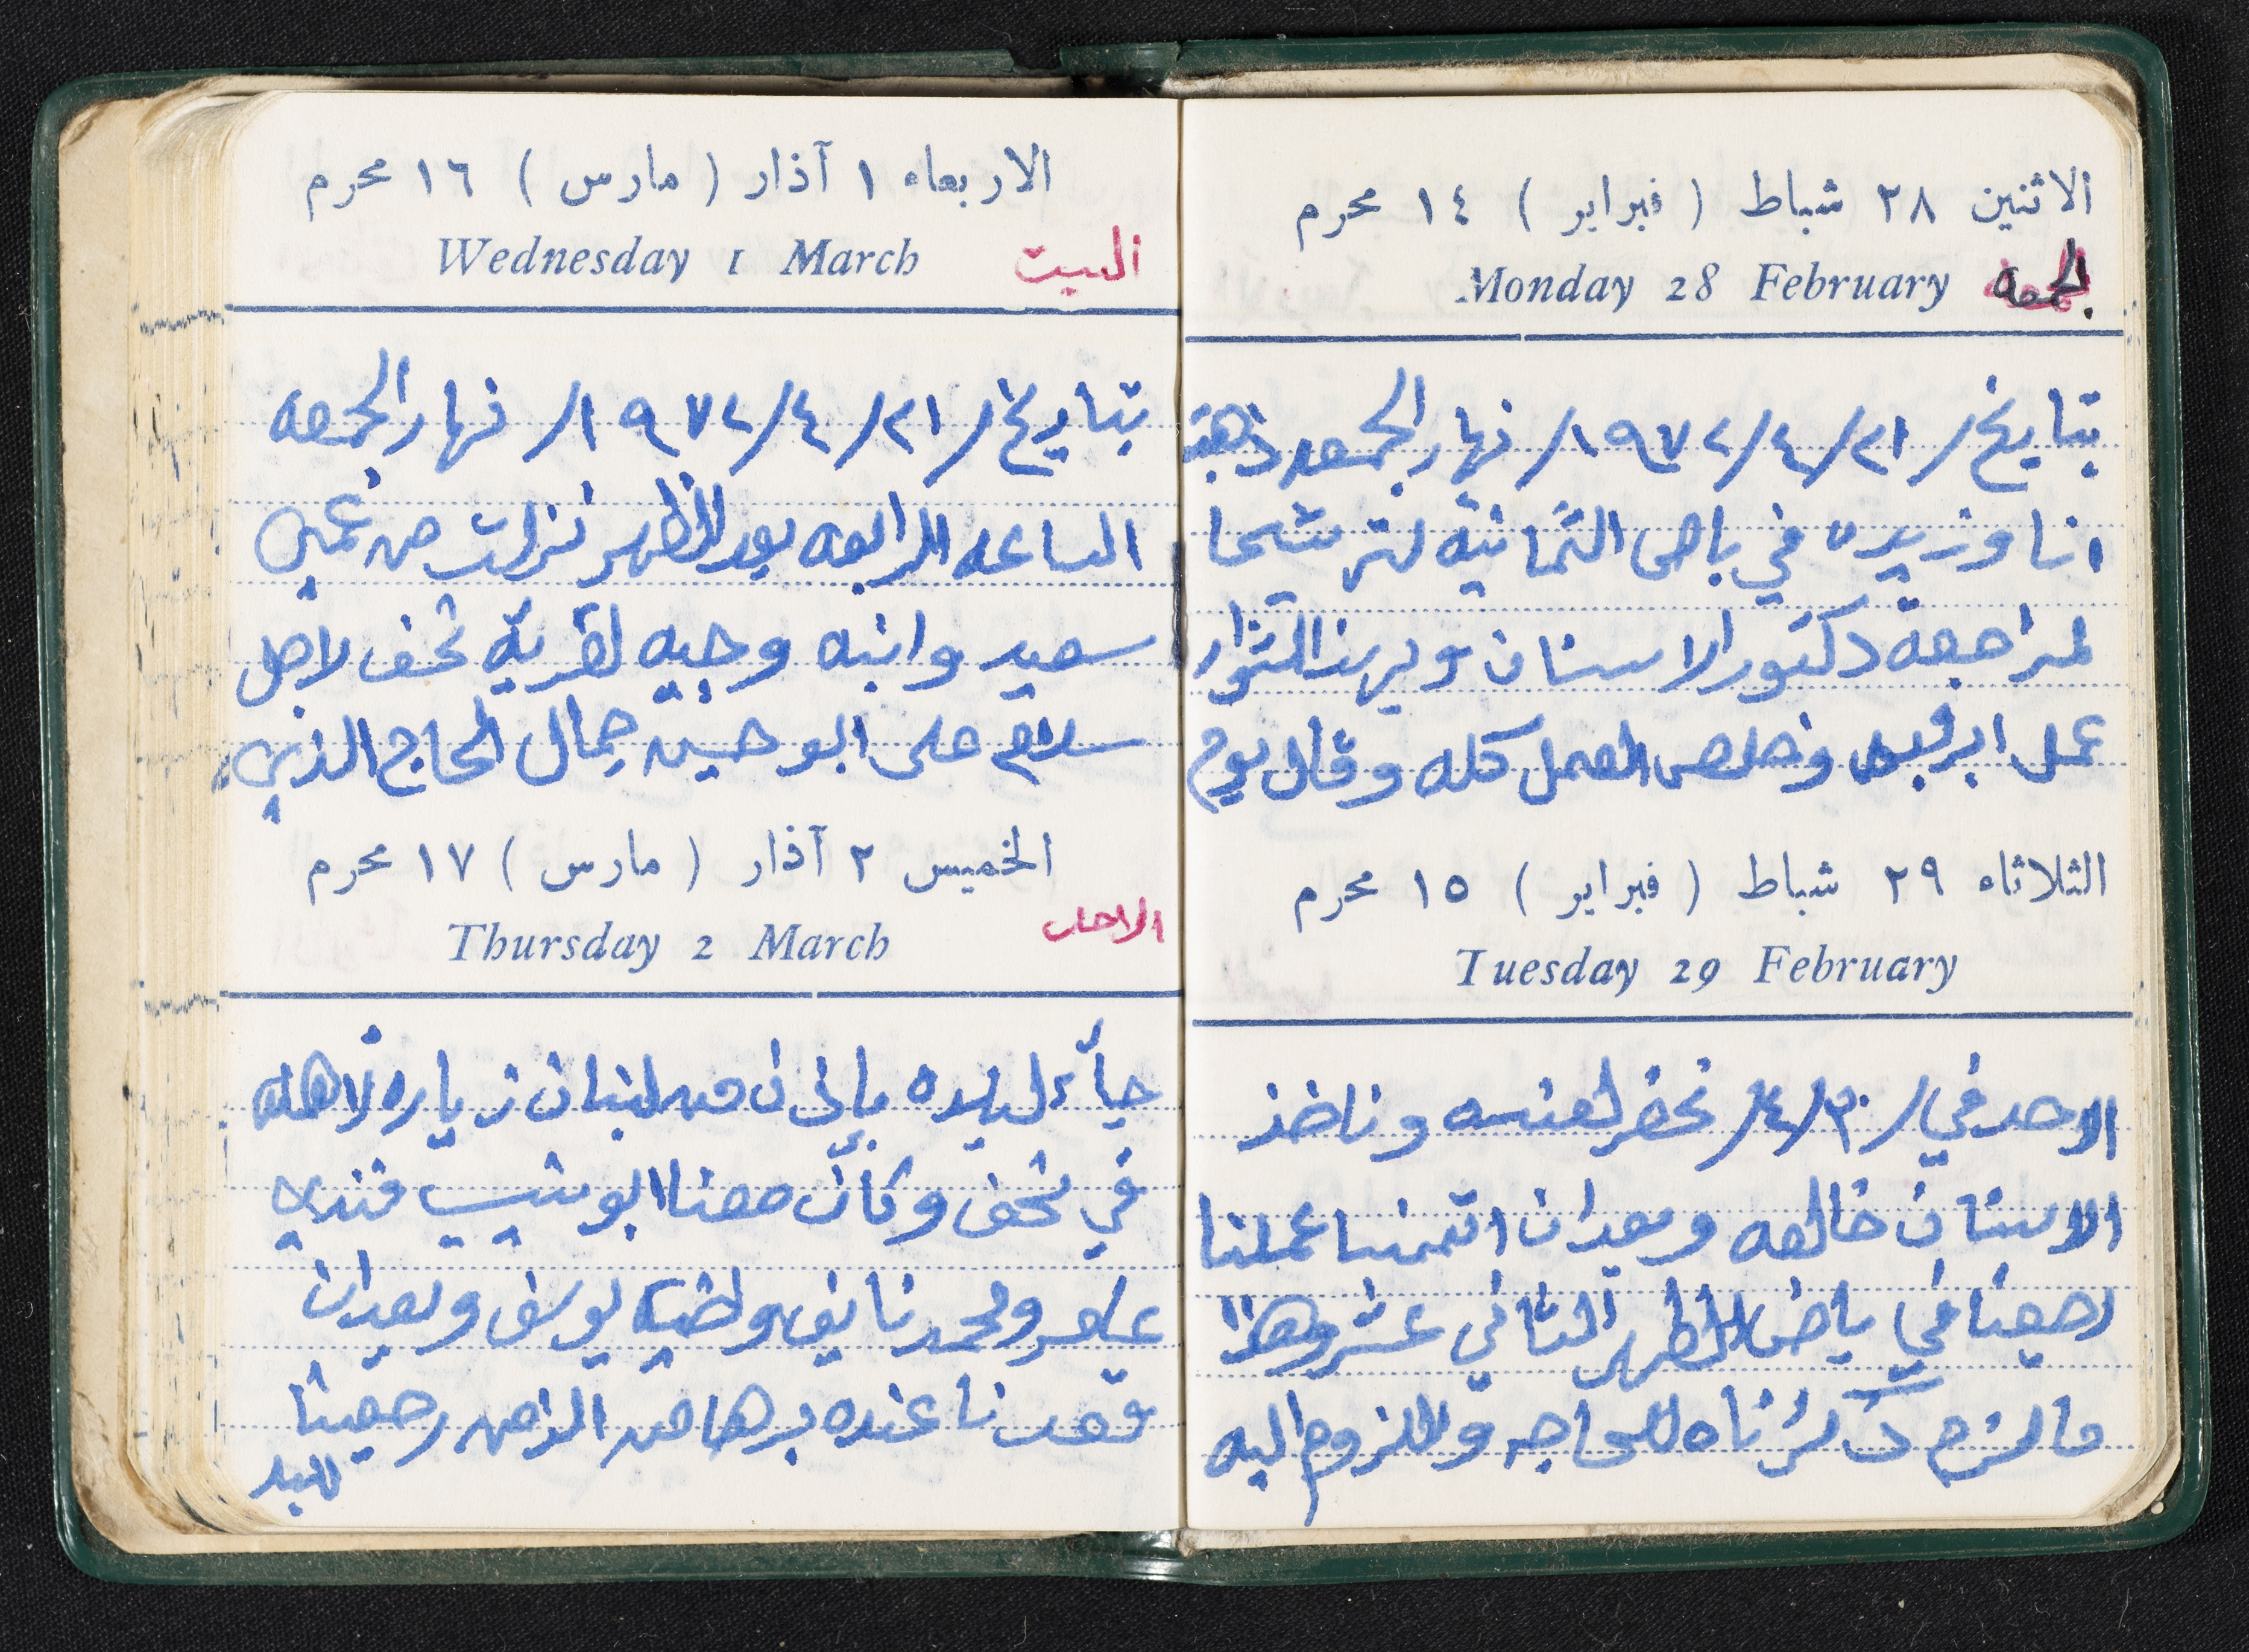 الاثنين ٢٨ شباط ( فبراير ) ١٤ محرم
Monday 28 February الجمعه
بتايخ /٢١/٤/١٩٧٢/ نهار الجمعه ذهبت
انا وزيده في باص الثمانيه لترشيحا
لمراجعة دكتور الاسنان
عمل وخلص العمل كله وقال يوم
الثلاثاء ٢٩ شباط ( فبراير ) ١٥ محرم
Tuesday 29 February
الاحد في /٣٠/٤/ نحضر لعنده وناخذ
الاسنان خالصه وبعدان اتممنا عملنا
رجعنا في باص الظهر الثاني عشر وهذا
ما لزم ذكرناه للحاجه وللزوم اليه
الاربعاء ١ آذار ( مارس ) ١٦ محرم
Wednesday 1 March السبت
بتاريخ /٢١/٤/١٩٧٢/ نهار الجمعه
الساعه الرابعه بعد الظهر نزلت مع عمي
سعيد وابنه وجيه لقرية نحف لاجل
سلام على ابو حسين جمال الحاج الذي
الخميس ٢ آذار ( مارس ) ١٧ محرم
Thursday 2 March الاحد
جآء لبلده بإذن من لبنان زياره لاهله
في نحف وكان معنا ابو شبيب فندي
عامر ومحمد نايف يوسف وبعدان
قعدنا عنده برها من الزمن رجعنا
للبلد